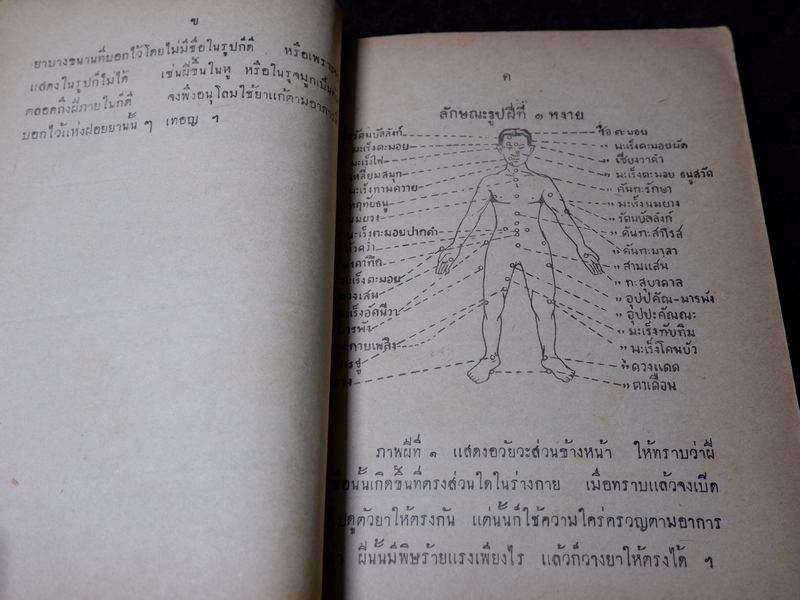 ข
ยาบางขนานที่บอกไว้โดยไม่มีชื่อในรูปก็ดี หรือเพราะ
แสดงในรูปก็ไม่ได้ เช่นฝีขึ้นในหู หรือในรูจมูกเป็นต้น
ตลอดถึงฝีภายในก็ดี จงพึงอนุโลมใช้ยาแก้ตามอาการที่
บอกไว้แห่งฝอยยานั้น ๆ เทอญ ฯ
ค
ลักษณะรูปฝีที่ ๑ หงาย
รัตนบัลลังก์
ชื่อ ตะมอย
มะเร็งตะมอย
" มะเร็งตะมอยผัด
มะเร็งไฟ
" เชียงวาดำ
เหลี่ยมสมุก
" มะเร็งตะมอย ธนูสวัด
มะเร็งทามควาย
" คันทะรักษา
หฤทัยธนู
" มะเร็งนมยวง
นมยวง
" รัตนบัลลังก์
มะเร็งตะมอยปากดำ
" คันทะสกิรส์
หัวคว่ำ
" คันทะมาลา
คาทึก
" สามแสน
มะเร็งตะมอย
" ทะสุบาตาล
ดวงเล่น
" อุปปัคัณ-มารพัง
มะเร็งอัคนีวา
" อุปปะคัณณะ
มารพัง
" มะเร็งทับทิม
กายเพลิง
" มะเร็งโคนบัว
" ดวงแดด
" ตาเดือน
ภาพฝีที่ ๑ แสดงอวัยวะส่วนข้างหน้า ให้ทราบว่าฝี
ชื่อนั้นเกิดขึ้นที่ตรงส่วนใดในร่างกาย เมื่อทราบแล้วจงเปิด
ไปดูตัวยาให้ตรงกัน แต่นั้นก็ใช้ความใคร่ครวญตามอาการ
ว่า ฝีนั้นมีพิษร้ายแรงเพียงไร แล้วก็วางยาให้ตรงได้ ฯ